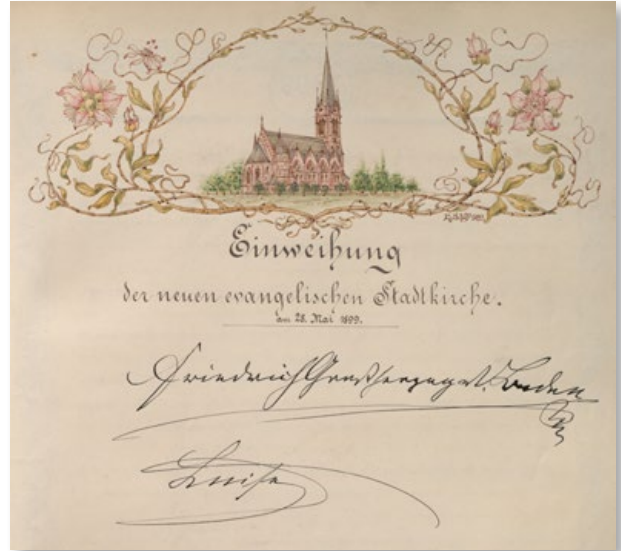 Einweihung
der neuen evangelischen Stadtkirche.
am 28. Mai 1899.
Friedrich Großherzog v. Baden
Luise